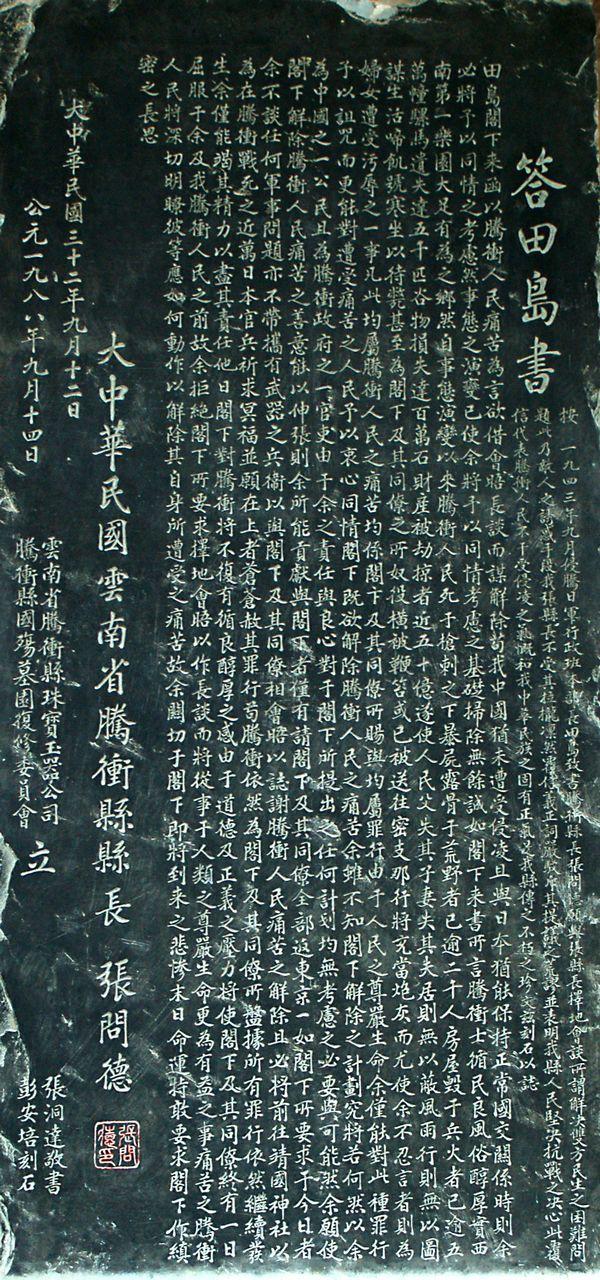 答田島書
按 一九四三年九月侵騰日軍行政班本部長田島致書騰衝縣長張問德願與張縣長擇地會談所謂解決雙方民生之困難問
題此乃敵人之誘惑手段我張縣長不受其拉攏凜然覆信義正詞嚴斥其提議之荒謬並表明我縣人民堅決抗戰之決心此覆
信代表騰衝人民不干受侵凌之氣慨和我中華民族之固有正氣是我縣傳之不朽之珍文茲刻石以誌
田島閣下來函以騰衝人民痛苦為言欲借會晤長談而謀解除苟我中國猶未遭受侵凌且與日本猶能保持正常國交關係時則余
必將予以同情之考慮然事態之演變已使余將予以同情考慮之基礎掃除無餘誠如閣下來書所言騰衝士循民良風俗醇厚實西
南第一樂園大足有為之鄉然自事態演變以來騰衝人民死于槍刺之下暴屍露骨于荒野者已逾二千人房屋毀于兵火者已逾五
萬幢騾馬遺失達五千匹谷物損失達百萬石財產被劫掠者近五十億遂使人民父失其子妻失其夫居則無以蔽風雨行則無以圖
謀生活啼飢號寒坐以待斃甚至為閣下及其同僚之所奴役橫被鞭笞或已被送往密支那行將充當炮灰而尤使余不忍言者則為
婦女遭受污辱之一事凡此均屬騰衝人民之痛苦均係閣下及其同僚所賜與均屬罪行由于人民之尊嚴生命余僅能對此種罪行
予以詛咒而更能對遭受痛苦之人民予以衷心同情閣下既欲解除騰衝人民之痛苦余雖不知閣下解除之計劃究將若何然以余
為中國之一公民且為騰衝政府之一官吏由于余之責任與良心對于閣下所提出之任何計划均無考慮之必要與可能然余願使
閣下解除騰衝人民痛苦之善意能以伸張則余所能貢獻與閣下者僅有請閣下及其同僚全部返東京一如閣下所要求于今日者
余不談任何軍事問題亦不帶攜有武器之兵衛以與閣下及其同僚相會晤以誌謝騰衝人民痛苦之解除且必將前往靖國神社以
為在騰衝戰死之近萬日本官兵祈求冥福並願在上者蒼蒼赦其罪行苟騰衝依然為閣下及其同僚所盤據所有罪行依然繼續發
生余僅能竭其精力以盡其責任他日閣下對騰衝將不復有循良醇厚之感由于道德及正義之壓力將使閣下及其同僚終有一日
屈服于余及我騰衝人民之前故余拒絕閣下所要求擇地會晤以作長談而將從事于人類之尊嚴生命更為有益之事痛苦之騰衝
人民將深切明瞭彼等應如何動作以解除其自身所遭受之痛苦故余關切于閣下即將到來之悲慘末日命運特敢要求閣下作縝
密之長思
大中華民國雲南省騰衝縣縣長 張問德
張問德印
大中華民國三十二年九月十二日
公元一九八八年九月十四日
雲南省騰衝縣珠寶玉器公司
騰衝縣國殤墓園復修委員會
立
張洞達敬書
彭安培刻石